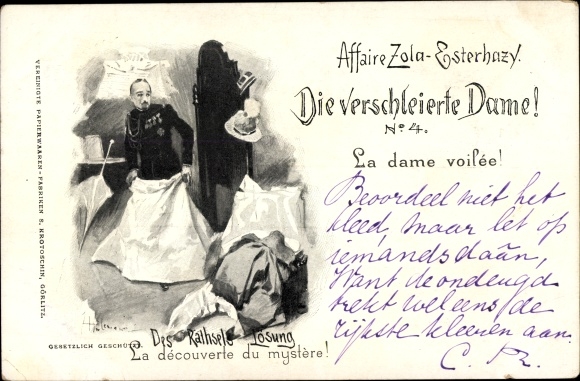 Affaire Zola-Esterhazy.
Die verschleierte Dame!
No. 4.
La dame voilée!
Beoordeel niet het
kleed, maar let op
iemands daân,
Want de ondeugd
trekt wel eens de
rijkste kleeren aan.
VEREINIGTE PAPIERWAAREN-FABRIKEN S. KROTOSCHIN, GÖRLITZ.
GESETZLICH GESCHÜTZT.
Des Räthsels Lösung
La découverte du mystère!